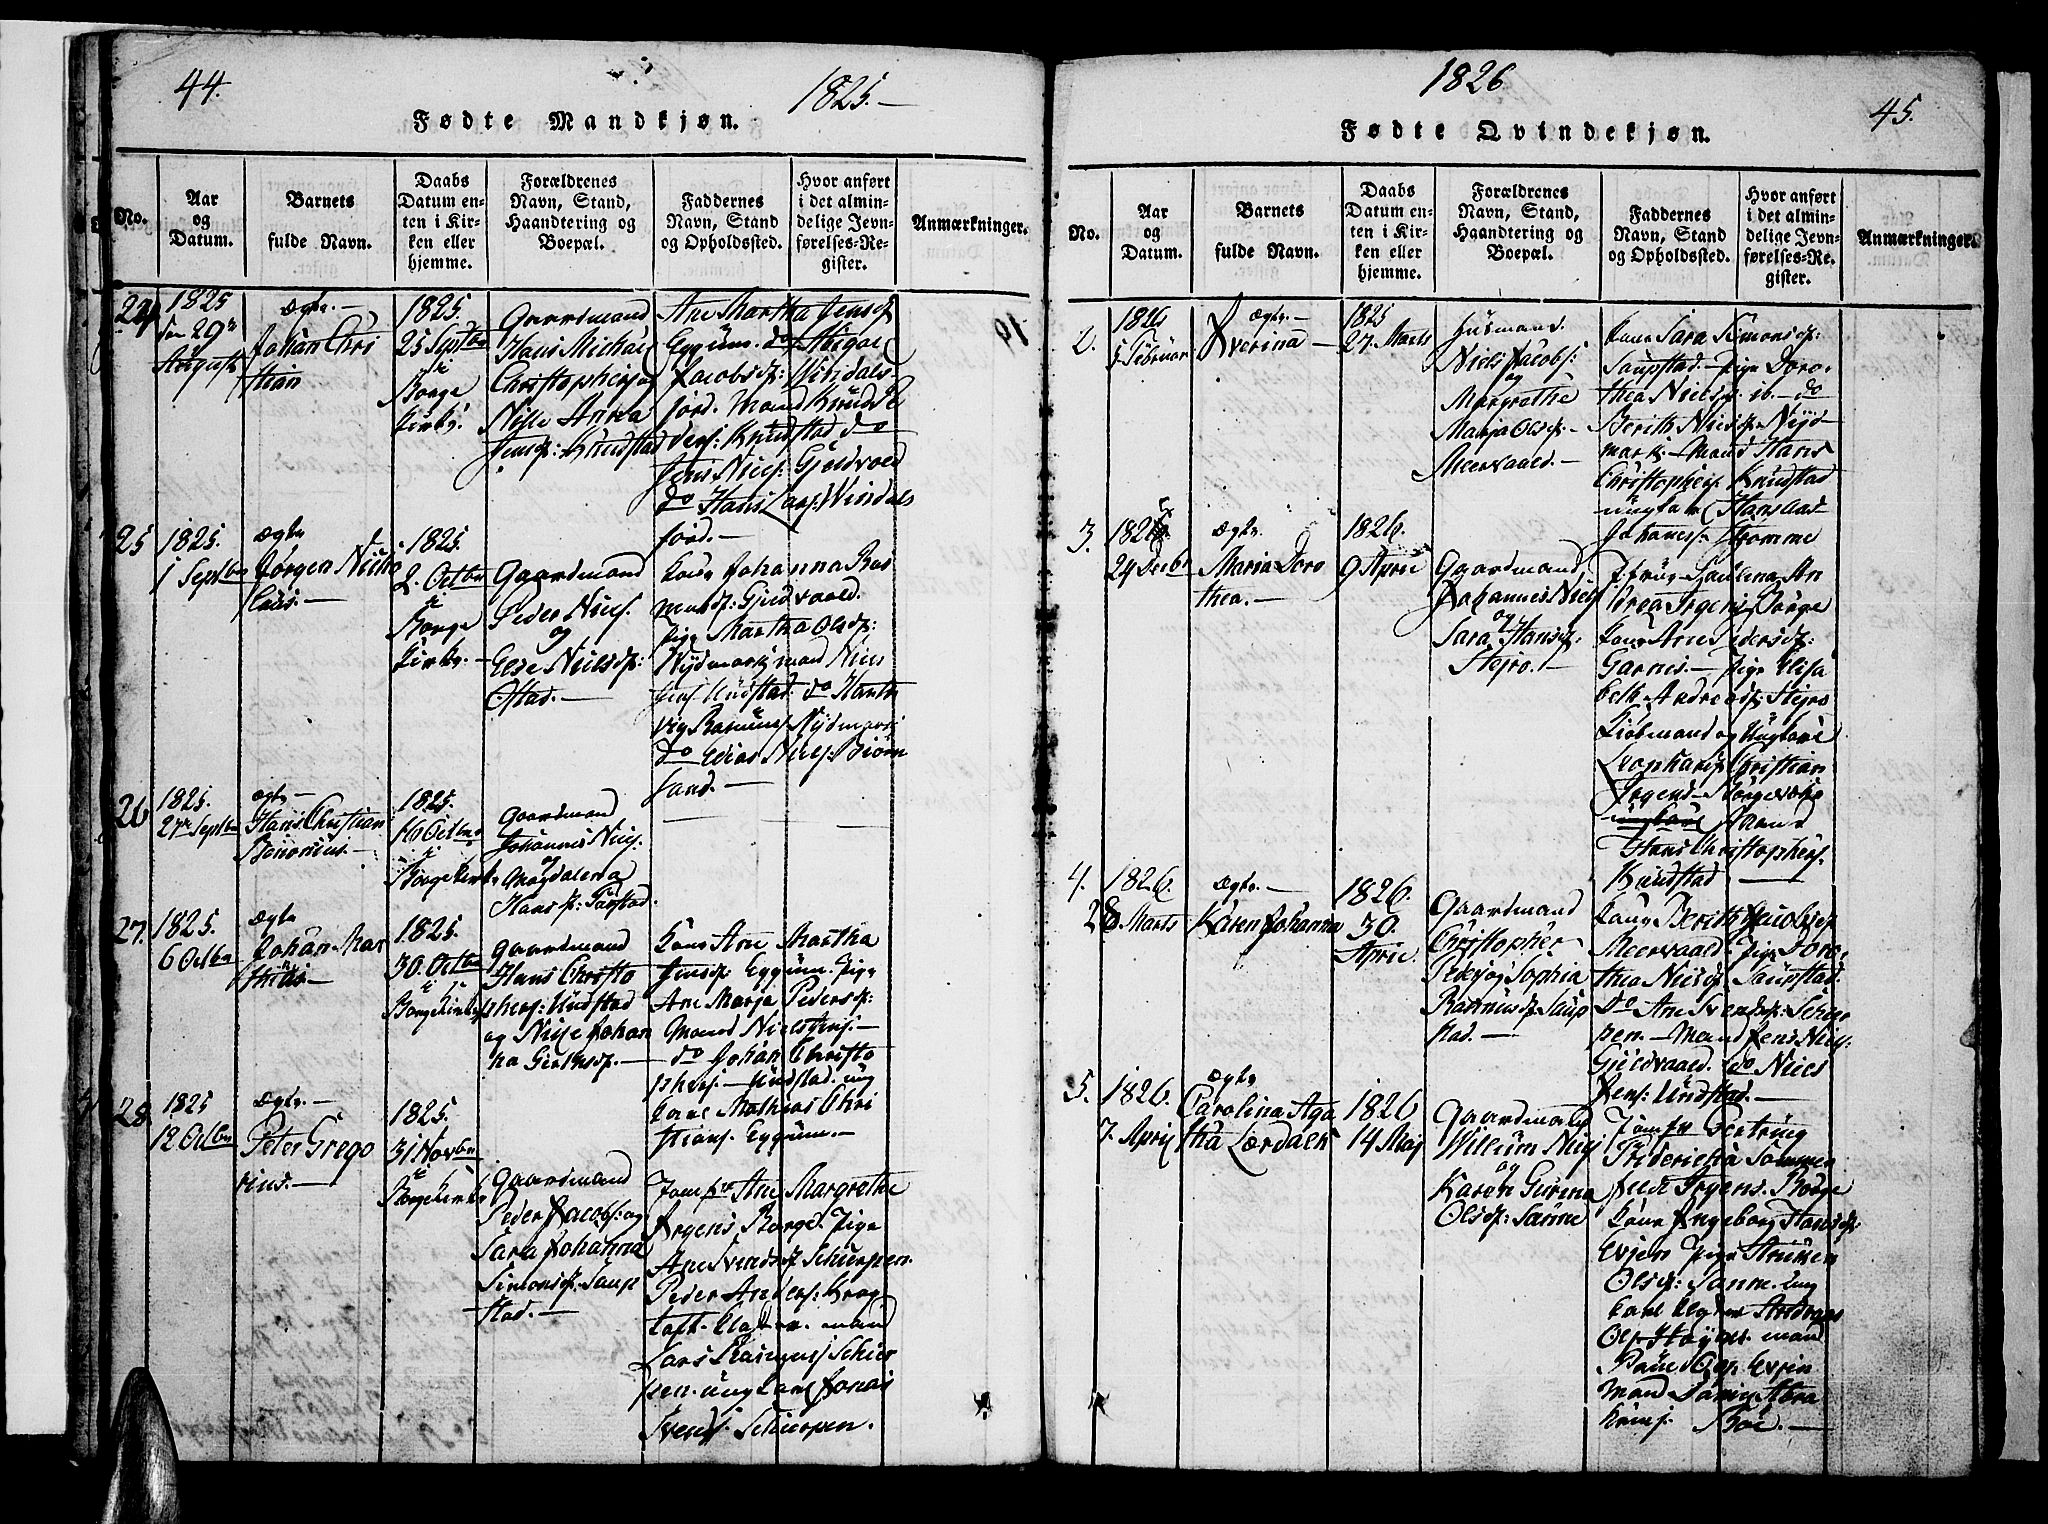 44.
1825.
Fødte Mandkjøn.
No.
Aar
og
Datum.
Barnets
fulde Navn.
Daabs
Datum en-
ten i Kir-
ken eller
hjemme.
Forældrenes
Navn, Stand,
Haandtering og
Boepæl.
Faddernes
Navn, Stand
og Opholdssted.
Hvor anført
i det almin-
delige Jevn-
førelses-Re-
gister.
Anmærkninger.
24
1825
den 29de
August
Ægte.
Johan Chri
stian
1825.
25 Septbr
i
Borge
Kirke.
Gaardmand
Hans Michael
Christophers og
Nille Andrea
Jensd: Knudstad
Ane Martha Jensd
Eggum. do Abigael
Jacobsd: Vindals
fjord. Mand Knud Pe
ders: Knudstad do
Jens Niels: Gjeldvold
do Hans Lars: Vindals
fjord.
25
1825.
1 Septbr
Ægte
Jørgen Nicho
laus.
1825.
2. Octbr
i
Borge
Kirke.
Gaardmand
Peder Niels.
og
Else Nielsd:
Ostad.
Kone Johanna Ras
musd: Gjeldvoald.
Pige Martha Olsd:
Nydmark mand Niels
Jens: Undstad: do Hart
vig Rasmus: Nydmark
do Elias Niels: Biørn
sand.
26
1825.
27de Septbr
Ægte
Hans Christian
1825.
16 Octbr
i
Borge Kirke
Gaardmand
Johannes Niels.
og
Magdalena
Hansd:
27.
1825.
6 Octbr
Ægte
Johan Mar
thias
1825.
30. Octbr
i
Borge Kirke
Gaardmand
Hans Christo
phers: Undstad
og Nille Johan
na
Kone Ane Martha
Jensd: Eggum. Pige
Ane Marja Pedersd:
Mand Niels Jens:
do Johan Christo
phers: Undstad. ung
karl Mathias Chri
stians. Eggum.
28.
1825
12 Octbr
Ægte.
Peter Grego
rius.
1825.
31 Novbr
i
Borge Kirke
Gaardmand
Peder Jacobs: og
Sara Johanna
Simonsd. Saup
stad.
Jomfru Ane Margrethe
Irgens Borge. Pige
Ane Svendsd Schierpen.
Peder Anders: Krog
toft. mand
Lars Rasmus Schier
pen. ung karl Jonas
Svends. Schierpen.
1826
45.
Fødte Qvindekjøn.
No.
Aar
og
Datum.
Barnets
fulde Navn.
Daabs
Datum en-
ten i Kir-
ken eller
hjemme.
Forældrenes
Navn, Stand,
Haandtering og
Boepæl.
Faddernes
Navn, Stand
og Opholdssted.
Hvor anført
i det almin-
delige Jevn-
førelses-Re-
gister.
Anmærkninger.
2.
1826
5 Februar
Ægte.
Iverina
1825
27. Marts
Husmand.
Niels Jacobs:
og
Margrethe
Marja Olsd:
Meervaald.
Kone Sara Simonsd:
Saupstad. Pige Doro-
thea Nielsd. ib. do
Berith Nielsd: Nyd
mark. Mand Hans
Christophers Knudstad
ungkarl Hans Aad
Johannes:
3.
1825
24 Decbr
Ægte.
Maria Doro
thea.
1826.
9 April
Gaardmand
Johannes Niels
og
Sara Hansd:
Stejro.
Frue Paulina An
drea Irgens Borge
Kone Ane Pedersd:
Garnes. Pige Elisa
beth Andreasd: Stejro
Kiøbmand og Ungkarl
Leonhard Christian
Irgens Borgevæhr
ungkarl Mand
Hans Christophers.
Knudstad
4.
1826.
28. Marts
Ægte.
Karen Johanna
1826.
30.
April
Gaardmand
Christopher
Peders og Sophia
Rasmusd: Saup
stad.
Kone Berith Jacobsd
Meervaald. Pige Doro-
thea Nielsd. Saupstad.
do Ane Svendsd: Schier
pen. Mand Jens Niels:
Gjeldvaald. do Niels
Jens: Undstad.
5.
1826.
7. April
Ægte
Carolina Aga
tha Lærdahl
1826
14 Maj
Gaardmand
Willum Niels
og
Karen Gurina
Olsd: Sanne
Jomfr Gertrug
Friderickha Sommer
feldt Irgens. Borge
Kone Ingeborg Hansd:
Evjen Pige
Olsd: Sanne. Ung
karl Andreas
Ols: mand
Poul Ols: Evjen
Mand Abra
hams: Bøe.